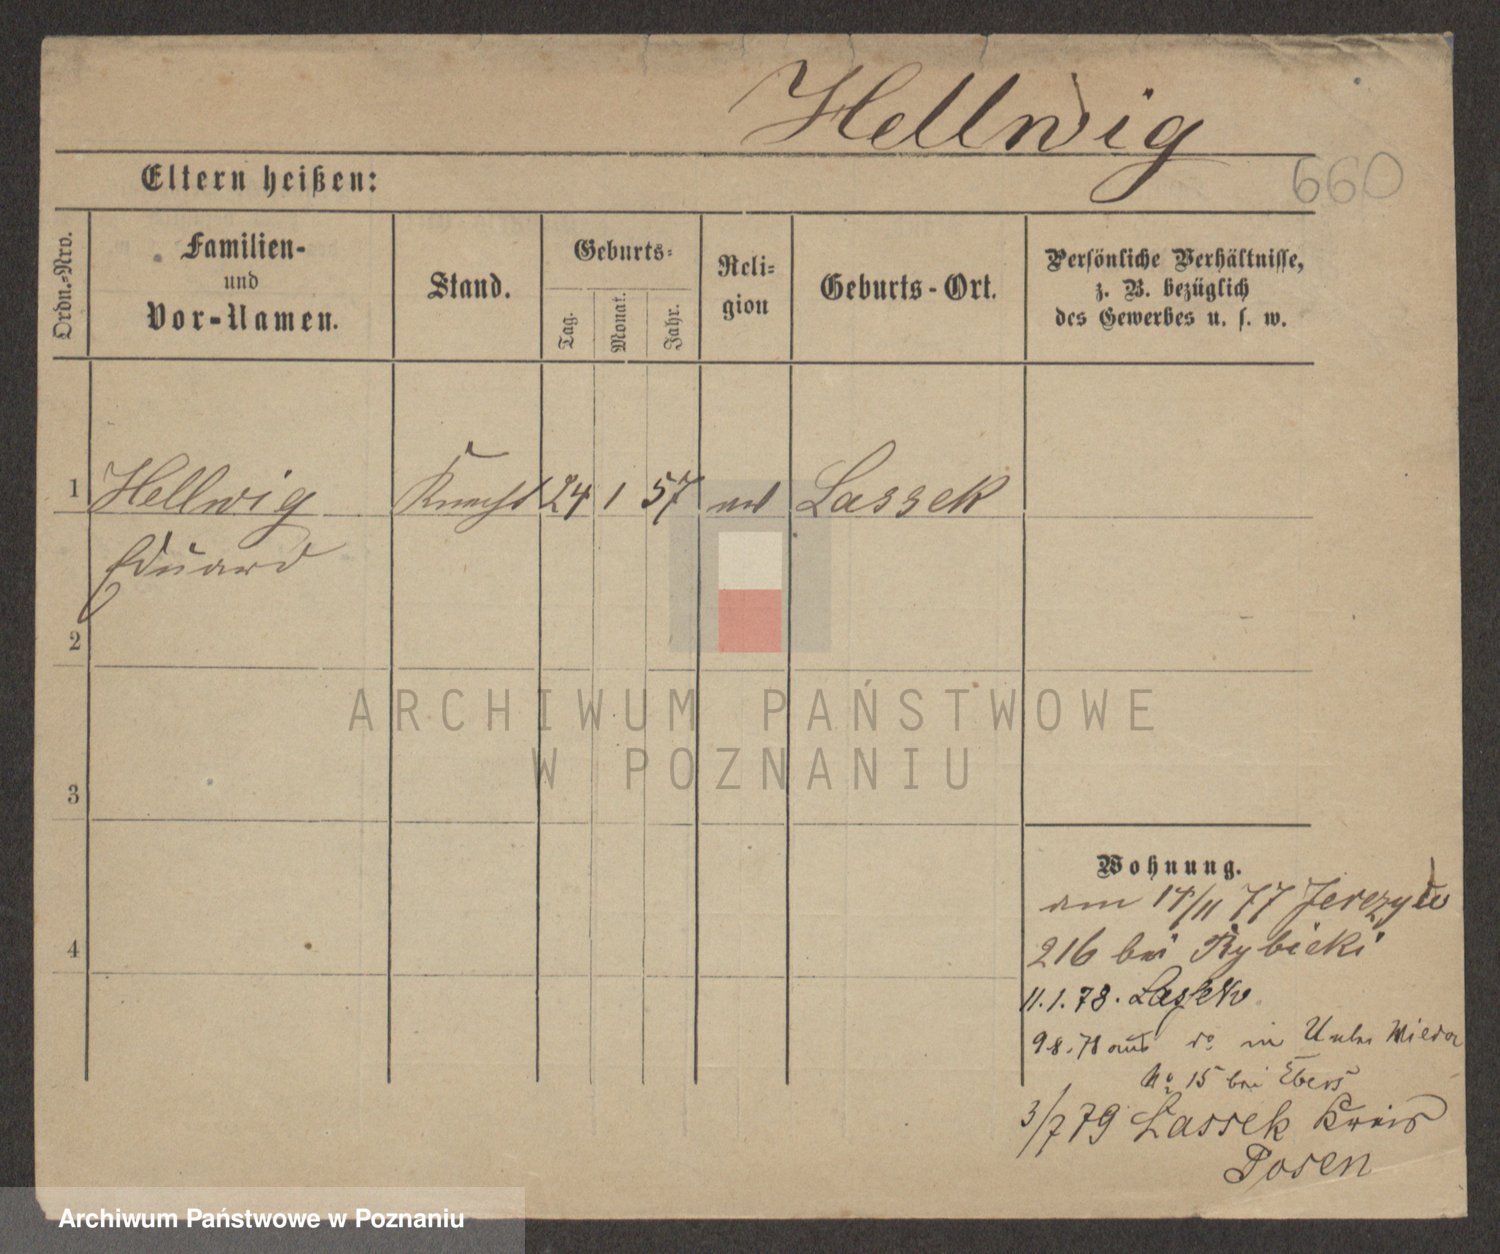 Hellwig
660
Eltern heißen:
Ordn.-Nro.
Familien-
und
Vor-Namen.
Stand.
Geburts-
Tag.
Monat.
Jahr.
Reli-
gion
Geburts-Ort.
Persönliche Verhältnisse,
z. B. bezüglich
des Gewerbes u. s. w.
1 Hellwig Knecht 24 1 57 Lassek
Eduard
2
3
4
ARCHIWUM PAŃSTWOWE
W POZNANIU
Wohnung.
am /11 77 Jerzyce
216 bei Rybicki
11.1.78. Lassek
in Unter Wilda
No 15 bei Ebers
3/7 79 Lassek Kreis
Posen
Archiwum Państwowe w Poznaniu